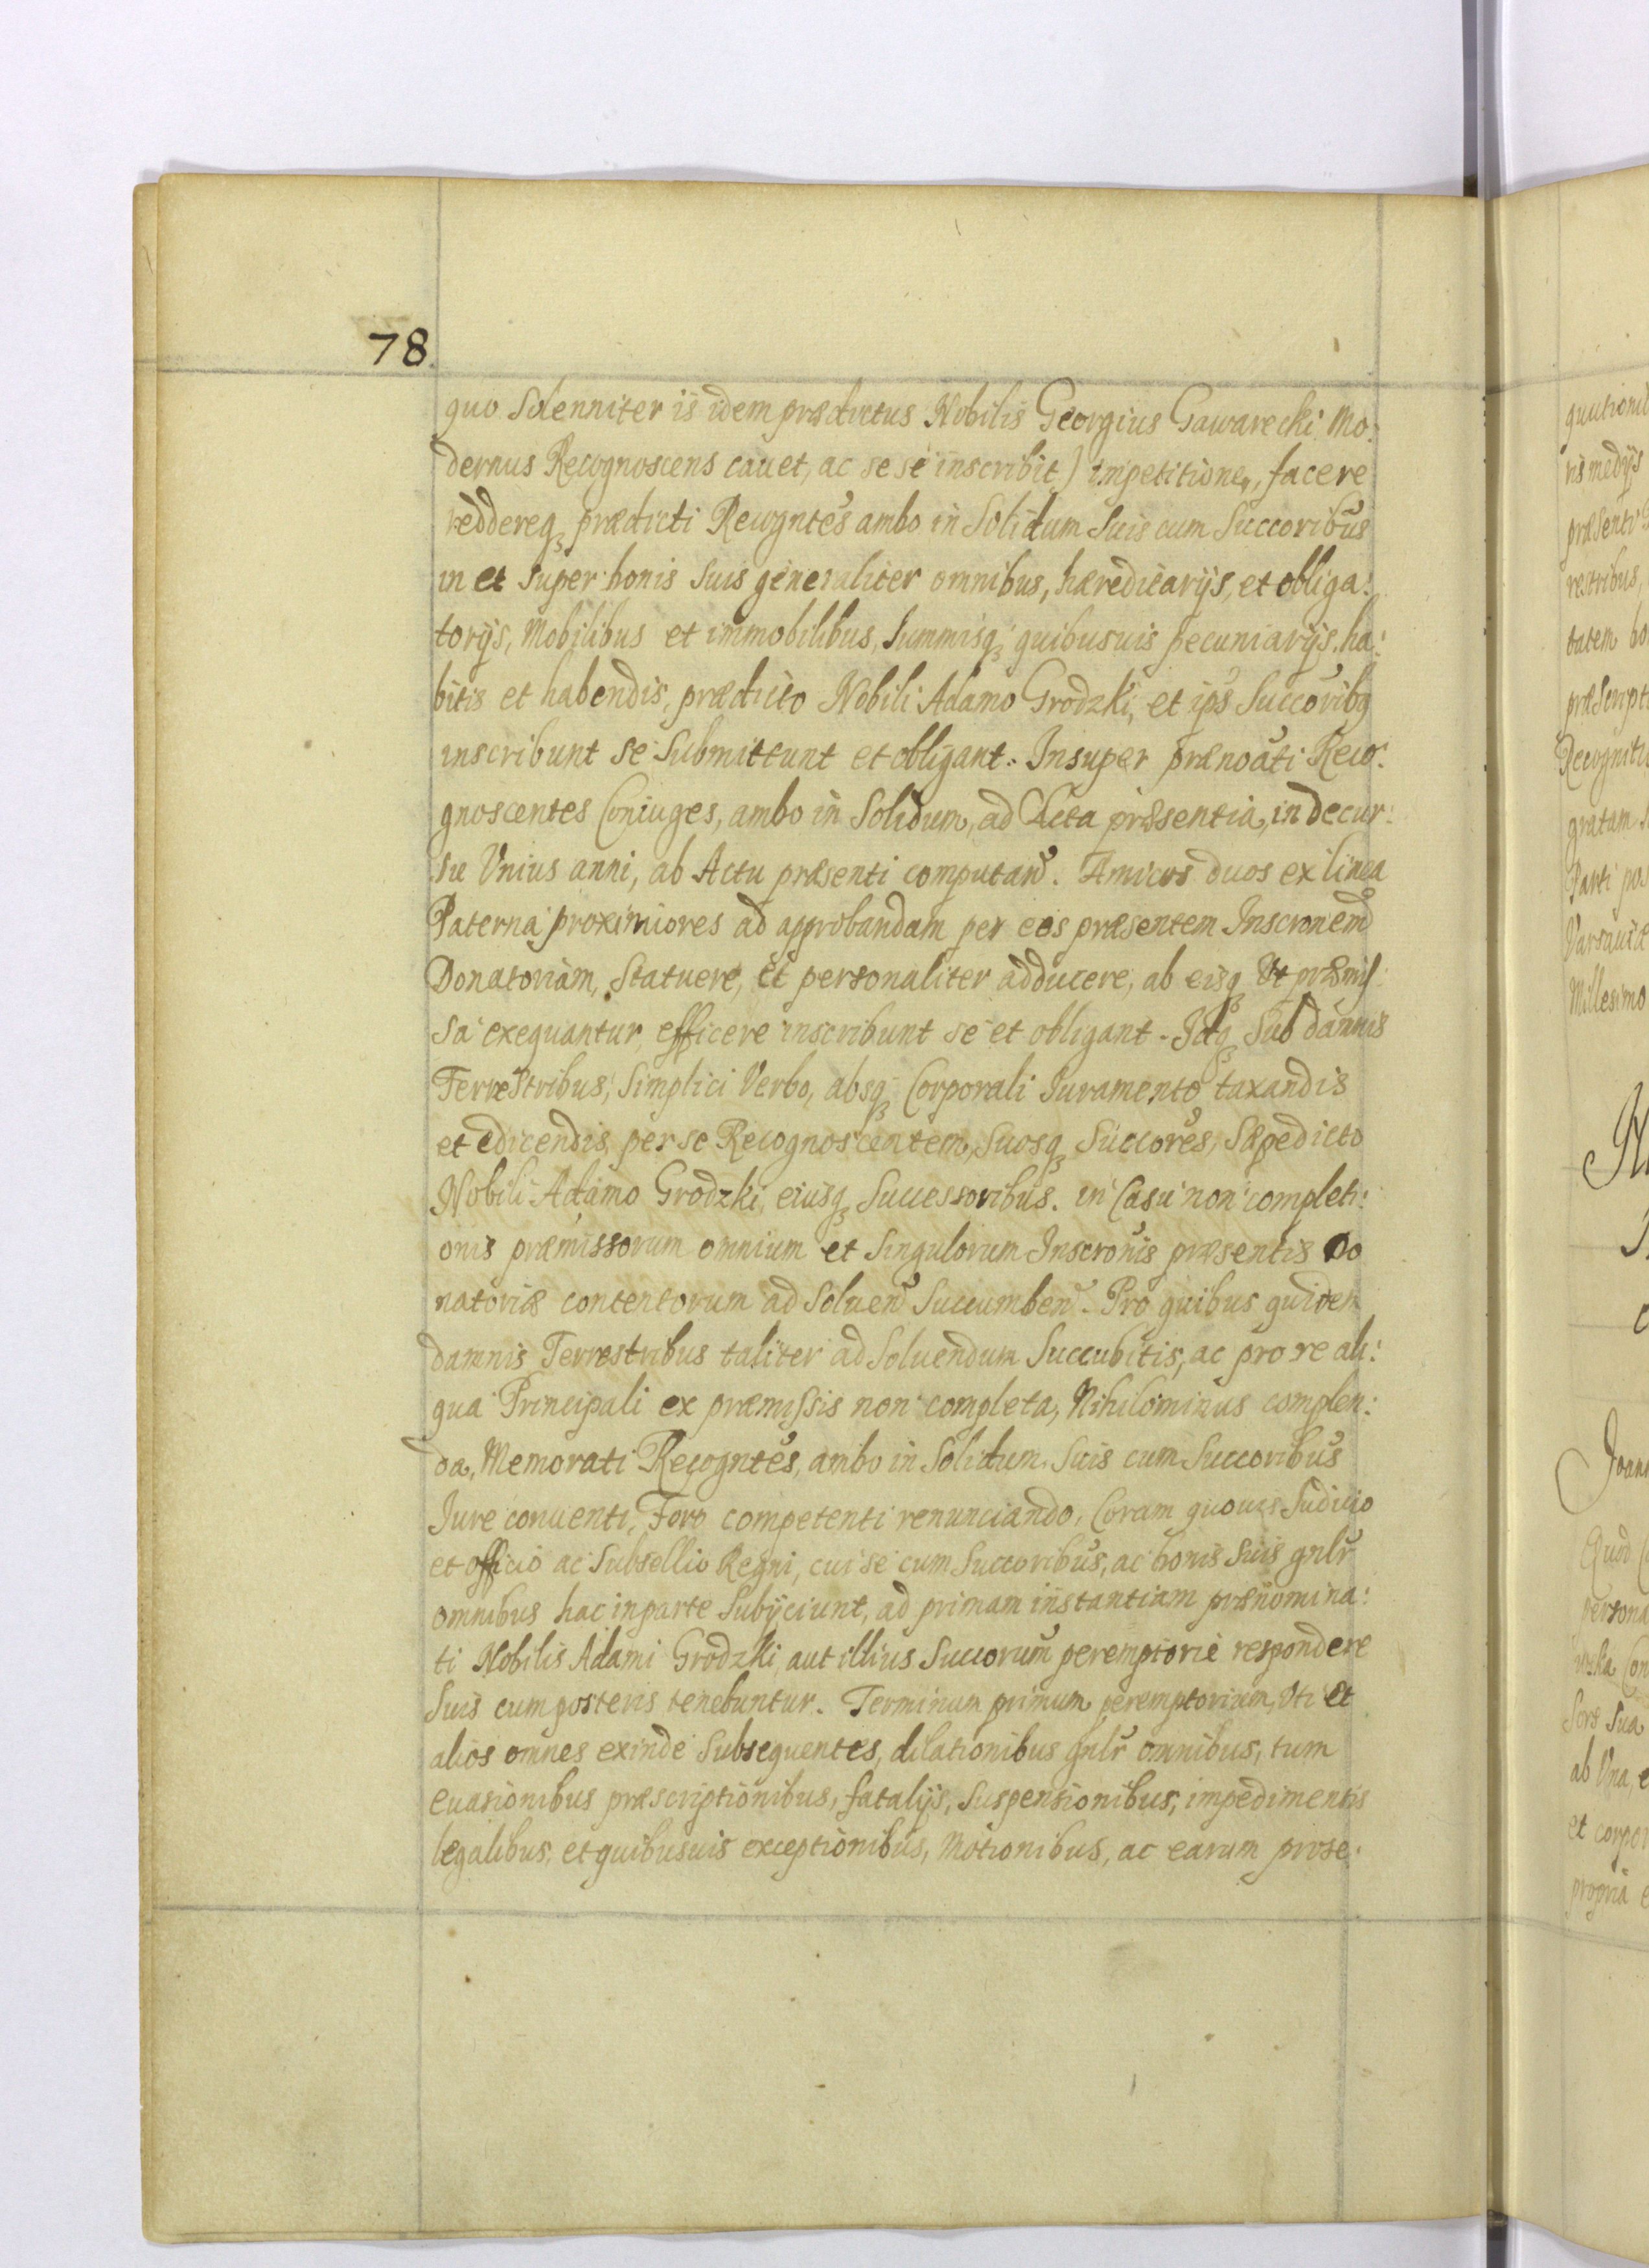 78
quo Solenniter is idem prædictus Nobilis Georgius Gawarecki Mo:
dernus Recognoscens cauet, ac se se inscribit) impetitione, facere
reddereq₃ prædicti Recogntēs ambo in Solidum Suis cum Succoribūs
in et super bonis Suis generaliter omnibus, hæreditarijs, et obliga:
torijs, Mobilibus et immobilibus, Summisq₃ quibusuis pecuniarijs, ha:
bitis et habendis, prædicto Nobili Adamo Grodzki, et ips̄ Succoribq
inscribunt se Submittunt et obligant. Insuper prænoāti Reco:
gnoscentes Coniuges, ambo in Solidum, ad Acta præsentia, in decur:
su Vnius anni, ab Actu præsenti computan̄d. Amicos duos ex linea
Paterna proximiores ad approbandam per eos præsentem Inscronem̄
Donatoriam, Statuere, et personaliter adducere, ab eisq₃ Vt præmis:
sa exequantur, efficere inscribunt se et obligant. Idq₃ Sub damnis
Terrestribus, Simplici Verbo, absq₃ Corporali Iuramento taxandis
et edicendis, per se Recognoscentem, Suosq₃ Succorēs, Sæpedicto
Nobili Adamo Grodzki, eiusq₃ Successoribus. in Casu non completi:
onis præmissorum omnium et Singulorum Inscronīs præsentis Do
natoriæ contentorum ad Soluen̄d Succumben̄d. Pro quibus quidem
damnis Terrestribus taliter ad Soluendum Succubitis, ac pro re ali:
qua Principali ex præmissis non completa, Nihilominus complen:
da, Memorati Recogntēs, ambo in Solidum, Suis cum Succoribūs
Iure conuenti, Foro competenti renunciando, Coram quouis Iudicio
et officio ac Subsellio Regni, cui se cum Succoribūs, ac bonis Suis gnlr̄
omnibus hac in parte Subijciunt, ad primam instantiam prænomina:
ti Nobilis Adami Grodzki, aut illius Succorum̄ peremptorie respondere
Suis cum posteris tenebuntur. Terminum primum peremptorium, Vti et
alios omnes exinde Subsequentes, dilationibus gnlr̄ omnibus, tum
euasionibus præscriptionibus, fatalijs, Suspensionibus, impedimentis
legalibus, et quibusuis exceptionibūs, Motionibus, ac earum prose: